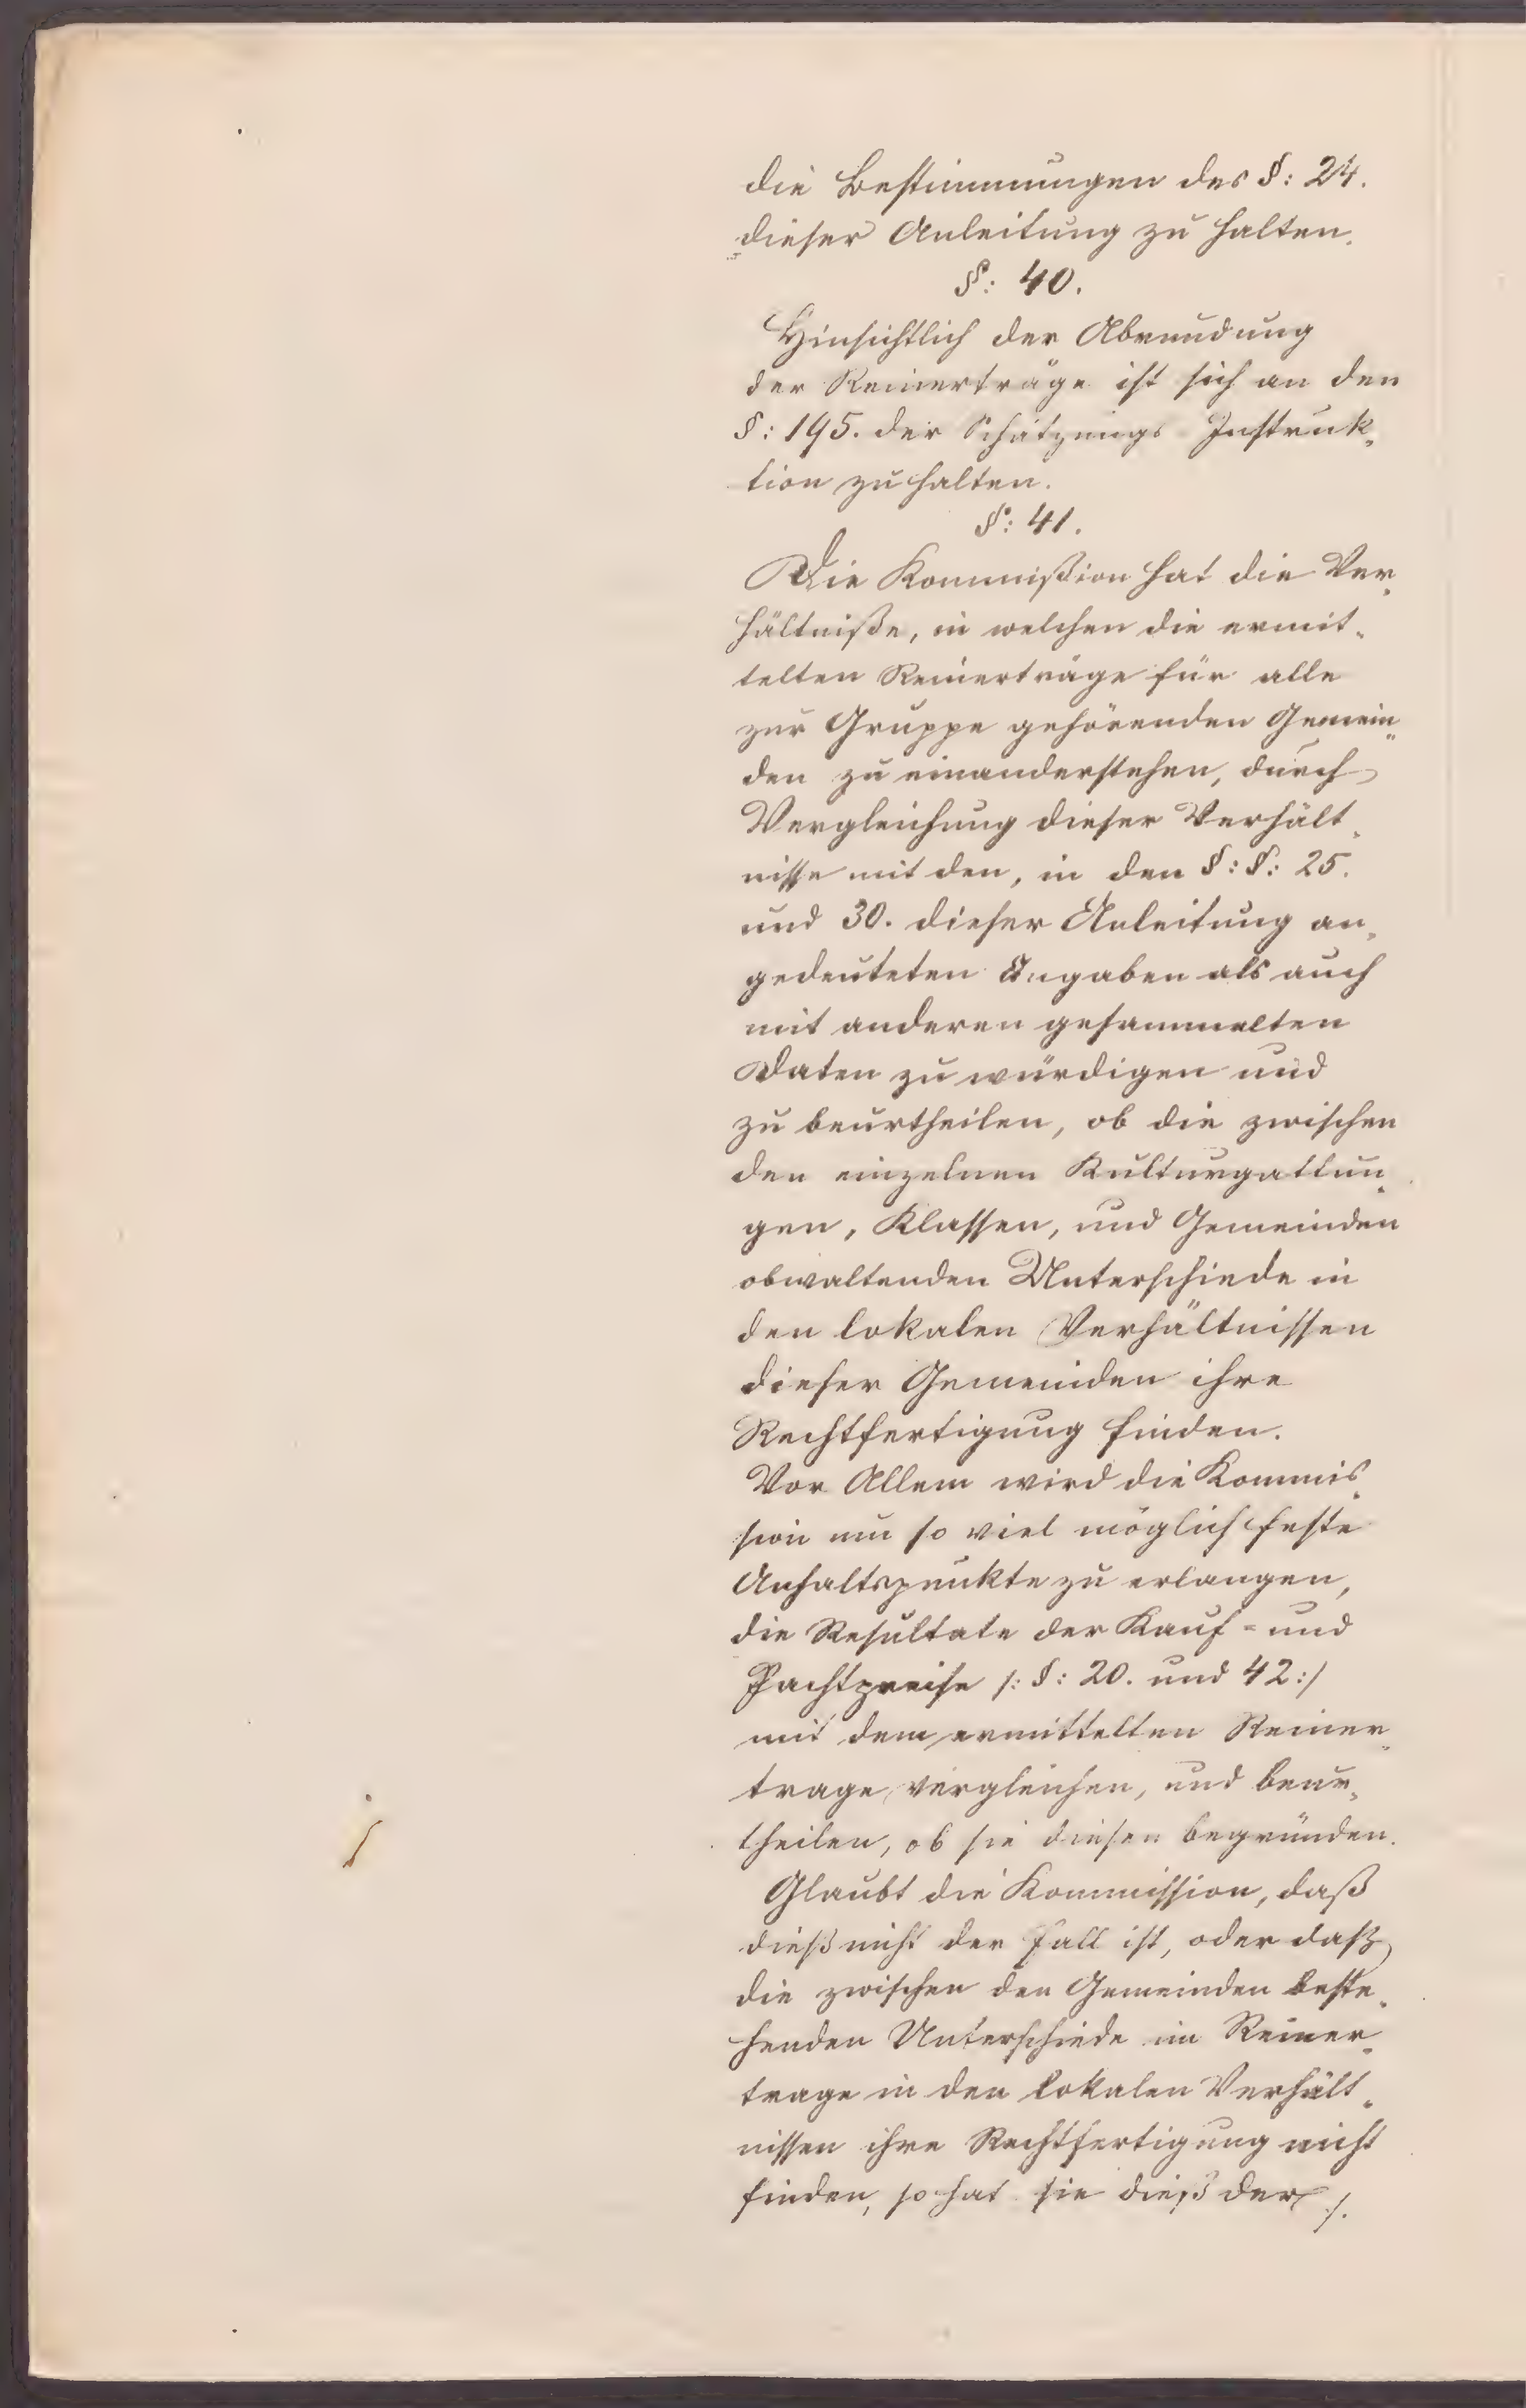 die Bestimmungen des §: 24.
dieser Anleitung zu halten.
§: 40.
Hinsichtlich der Abrundung
der Reinerträge ist sich an den
§: 195. der Schätzungs Instruk„
tion zu halten.
§: 41.
Die Kommißion hat die Ver„
hältniße, in welchen die ermit„
telten Reinerträge für alle
zur Gruppe gehörenden Gemein„
den zu einanderstehen, durch
Vergleichung dieser Verhält„
nisse mit den, in den §: §: 25.
und 30. dieser Anleitung an„
gedeuteten Angaben als auch
mit anderen gesammelten
Daten zu würdigen und
zu beurtheilen, ob die zwischen
den einzelnen Kulturgattun„
gen, Klassen, und Gemeinden
obwaltenden Unterschiede in
den lokalen Verhältnissen
dieser Gemeinden ihre
Rechtfertigung finden.
Vor Allem wird die Kommis„
sion um so viel möglich feste
Anhaltspunkte zu erlangen,
die Resultate der Kauf- und
Pachtpreise /: §: 20. und 42 :/
mit dem ermittelten Reiner„
trage vergleichen, und beur„
theilen, ob sie diesen begründen.
Glaubt die Kommission, daß
dieß nicht der Fall ist, oder daß
die zwischen den Gemeinden beste„
henden Unterschiede im Reiner„
trage in den lokalen Verhält„
nissen ihre Rechtfertigung nicht
finden, so hat sie dieß der ./.